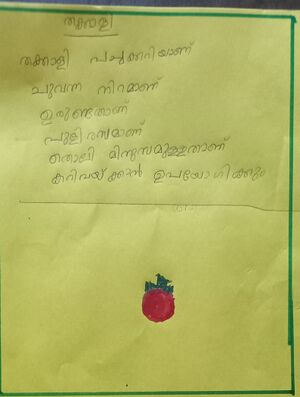 തക്കാളി
തക്കാളി പച്ചക്കറിയാണ്
ചുവന്ന നിറമാണ്
ഉരുണ്ടതാണ്
പുളിരസമാണ്
തൊലി മിനുസമുള്ളതാണ്
കറിവയ്ക്കാൻ ഉപയോഗിക്കും